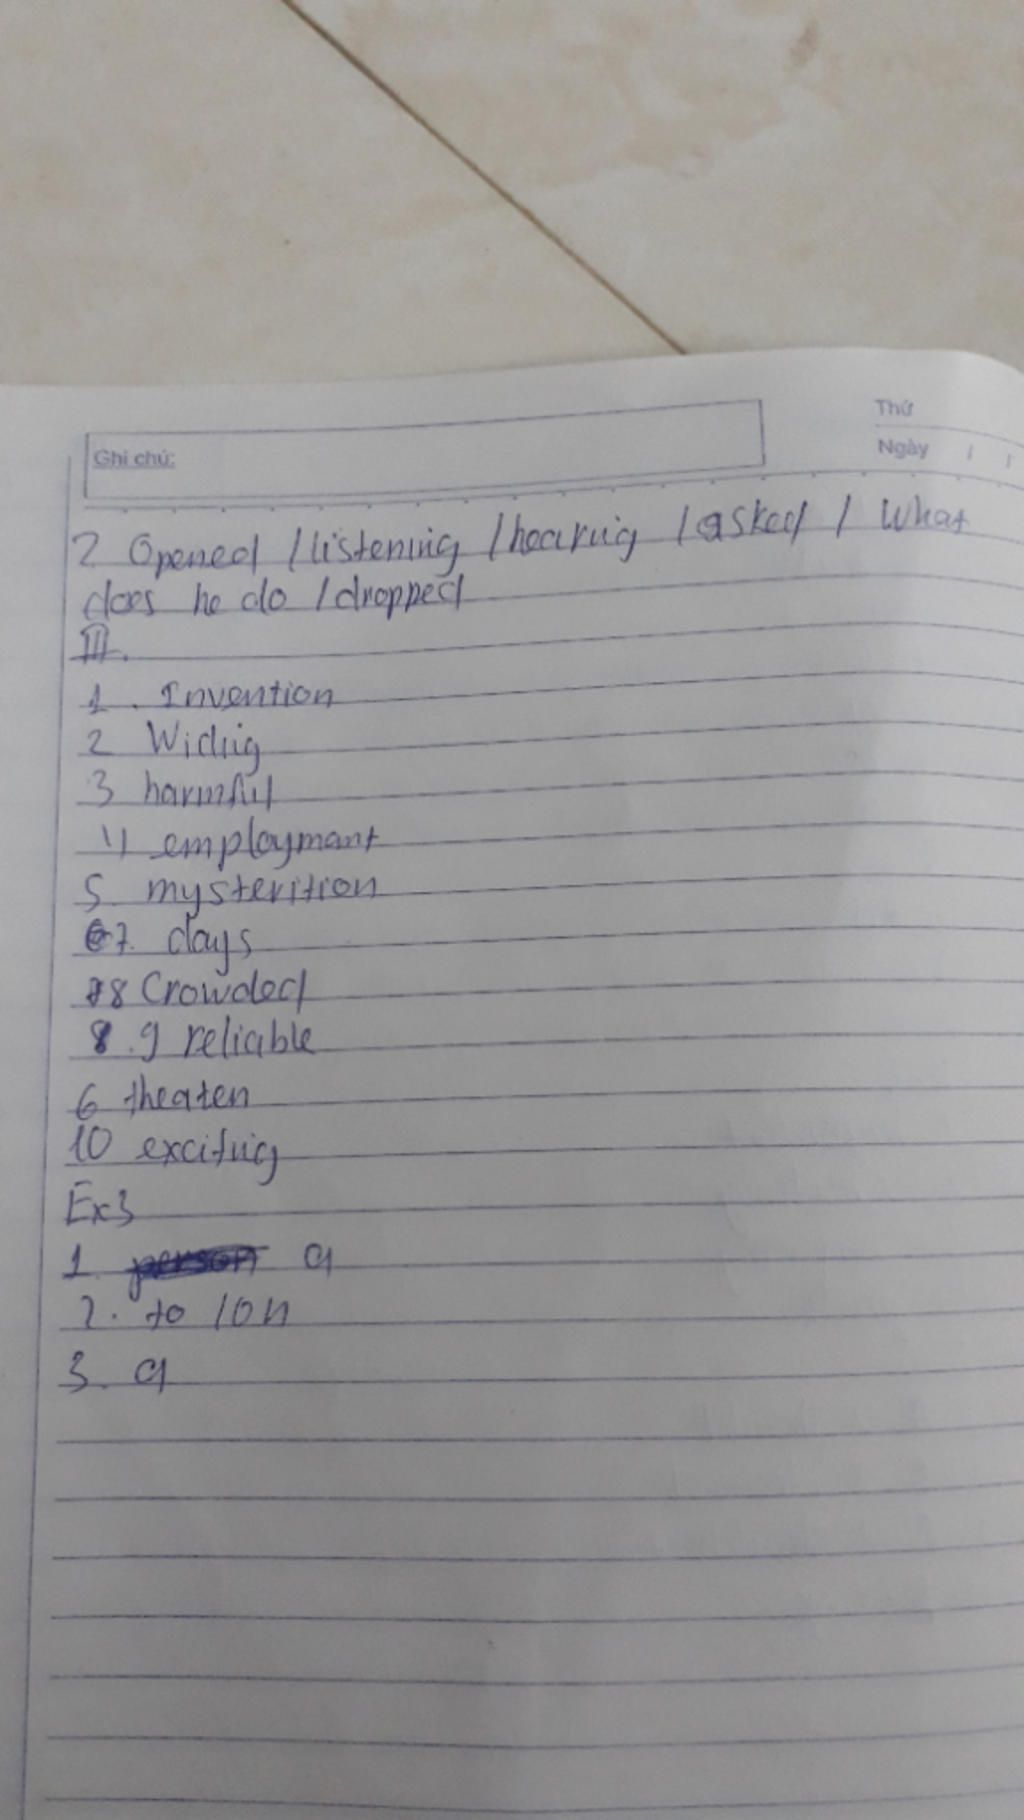 Thứ
Ghi chú:
Ngày / /
2 Opened / listening / hearing / asked / What
does he do / dropped
III.
1. Invention
2 Widing
3 harmful
4 employmant
5. mysterition
7. days
8 Crowded
9 reliable
6 theaten
10 exciting
Ex3
1. a
2. to / on
3. a